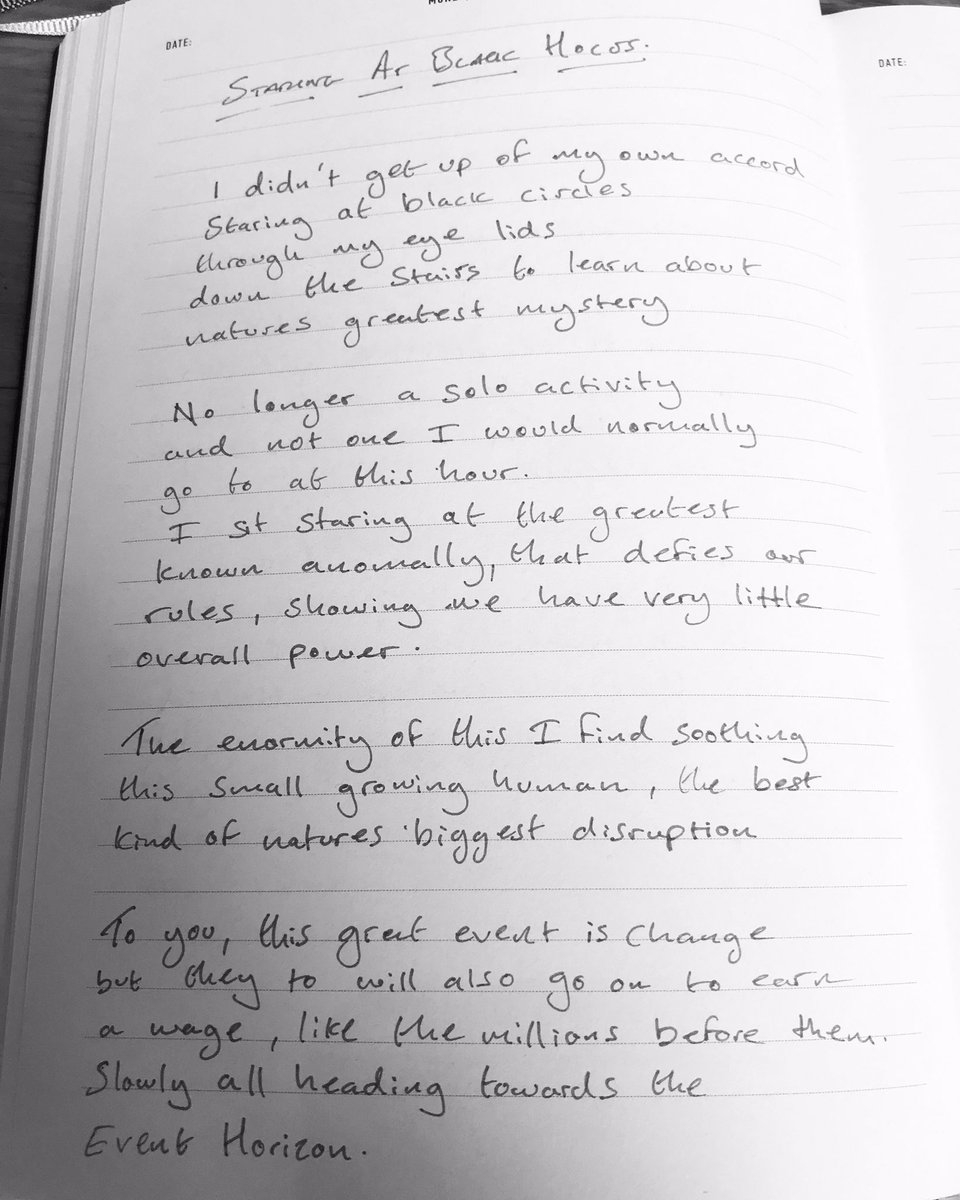 DATE:
DATE:
STARING AT BLACK HOLES.
I didn't get up of my own accord
Staring at black circles
through my eye lids
down the stairs to learn about
natures greatest mystery
No longer a solo activity
and not one I would normally
go to at this hour.
I sit staring at the greatest
known anomally, that defies our
rules, showing we have very little
overall power.
The enormity of this I find soothing
this small growing human, the best
kind of natures biggest disruption
To you, this great event is change
but they to will also go on to earn
a wage, like the millions before them.
Slowly all heading towards the
Event Horizon.